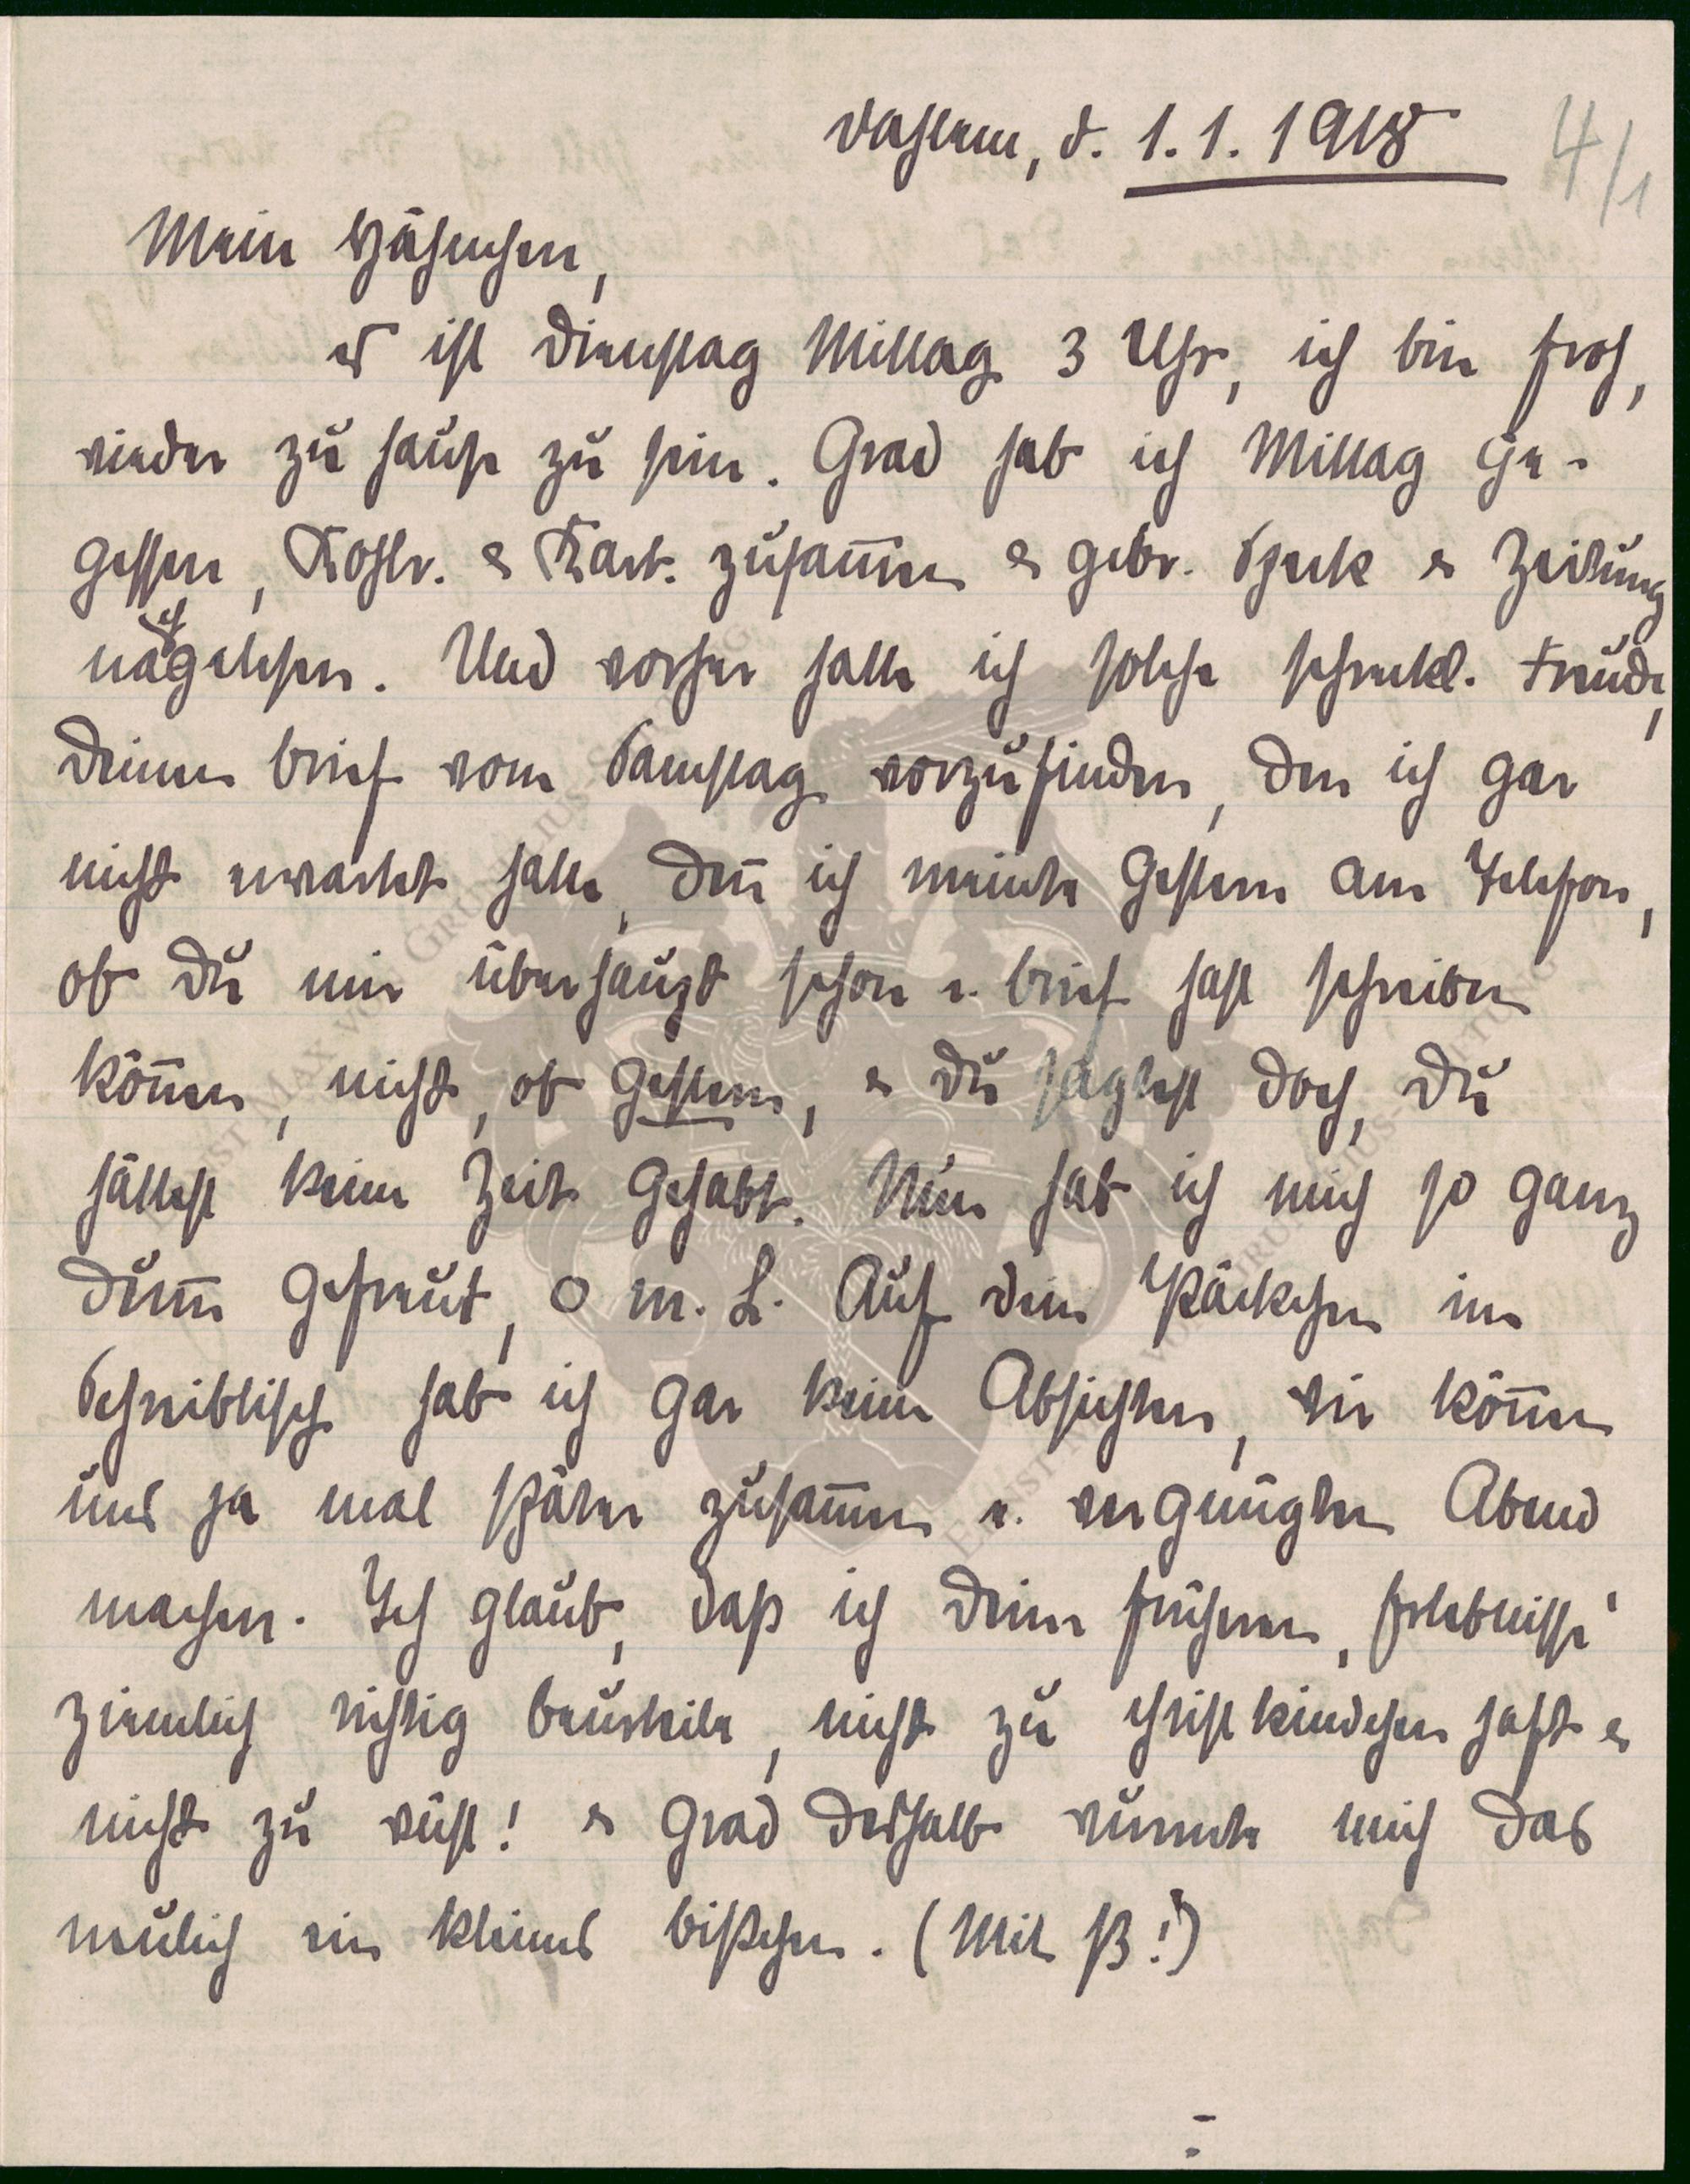 Dahlem, d. 1.1.1918
4/1
Mein Häschen,
es ist Dienstag Mittag 3 Uhr, ich bin froh,
wieder zu hause zu sein. Grad hab ich Mittag ge-
gessen, Kohlr. & Kart. zusam̄en & gebr. Speck & Zeitung
nachgelesen. Und vorher hatte ich solche schreckl. Freude,
Deinen Brief vom Samstag vorzufinden, den ich gar
nicht erwartet hatte, den̄ ich meinte gestern am Telefon,
ob Du mir überhaupt schon e. Brief hast schreiben
kön̄en, nicht, ob gestern, & Du sagtest doch, Du
hättest keine Zeit gehabt. Nun hab ich mich so ganz
dum̄ gefreut, o m. L. Auf dein Päckchen im
Schreibtisch hab ich gar keine Absichten, wir kön̄en
uns ja mal später zusam̄en e. vergnügten Abend
machen. Ich glaub, daß ich Deine früheren „Erlebnisse“
ziemlich richtig beurteile, nicht zu christkindchenhaft &
nicht zu wüst! & grad deshalb wurmte mich das
neulich ein kleines bißchen. (Mit ß!)